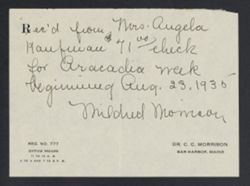 Rec'd from Mrs. Angela
Kaufman $71.00 check
for Aracadia week
beginning Aug. 23, 1935
Mildred Morrison
REG. NO. 777
OFFICE HOURS
DR. C. C. MORRISON
BAR HARBOR, MAINE